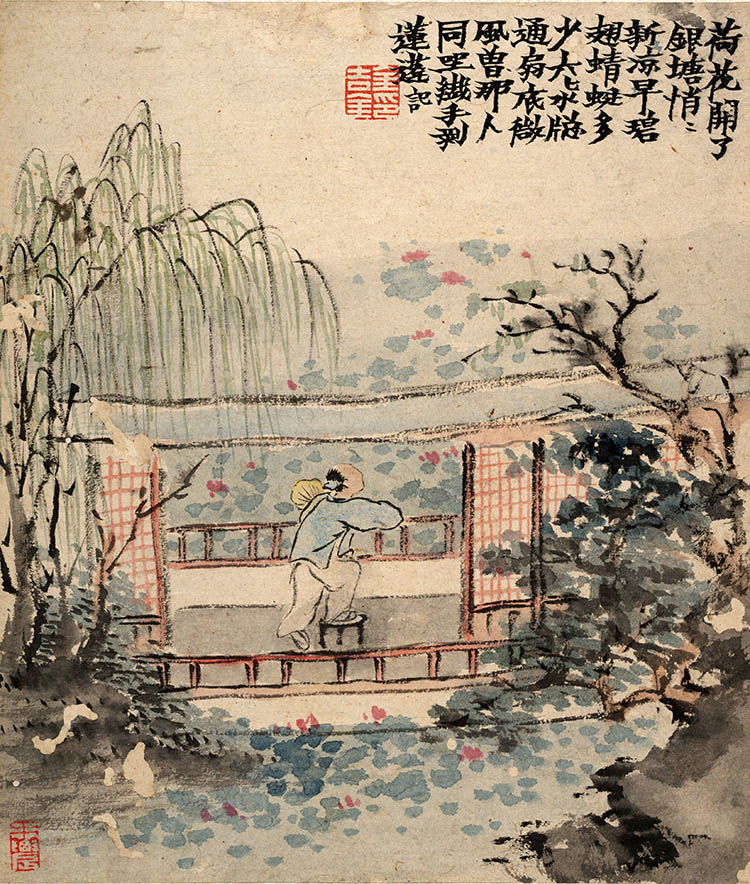 荷花開了
銀塘悄〻
新涼早碧
翅蜻蜓多
少六〻水窓
通扇底微
風曽那人
同坐纖手剥
蓮蓬記